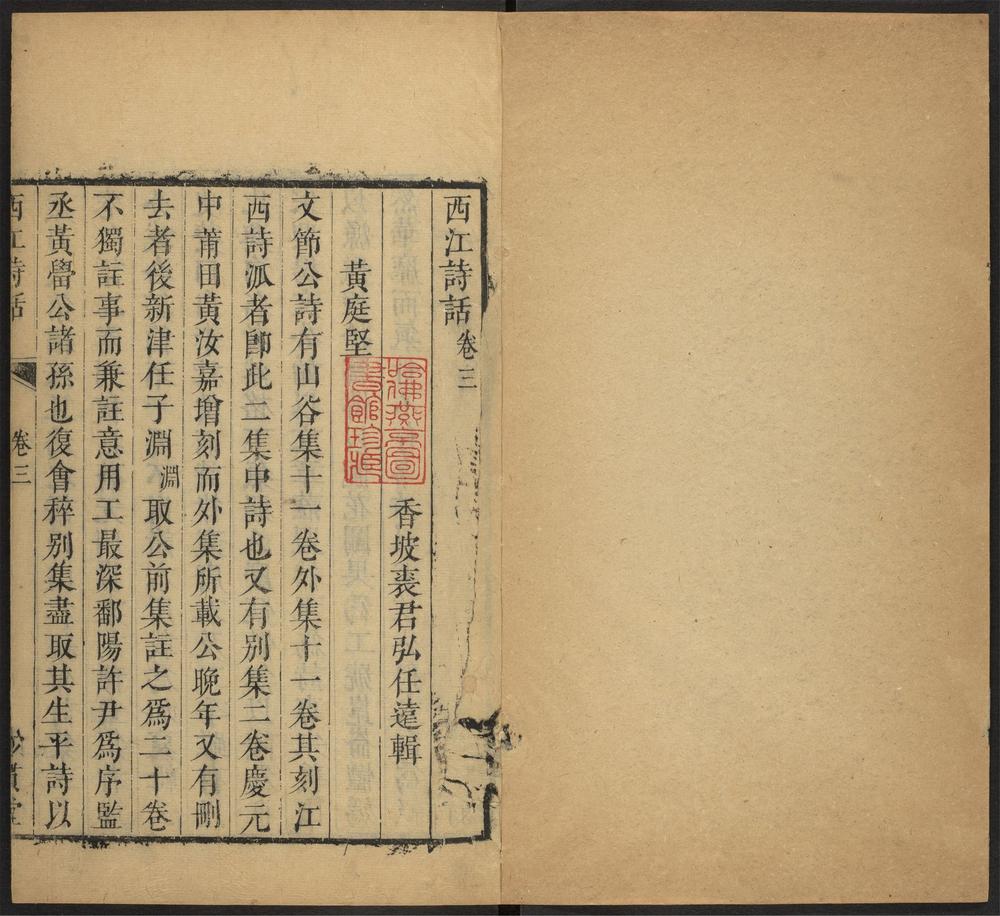 西江詩話卷三
香坡裘君弘任遠輯
黃庭堅
文節公詩有山谷集十一卷外集十一卷其刻江
西詩派者卽此二集中詩也又有別集二卷慶元
中莆田黃汝嘉增刻而外集所載公晚年又有刪
去者後新津任子淵淵取公前集註之爲二十卷
不獨註事而兼註意用工最深鄱陽許尹爲序監
丞黃㽦公諸孫也復會稡別集盡取其生平詩以
西江詩話
卷三
哈佛燕京圖
書館珍藏